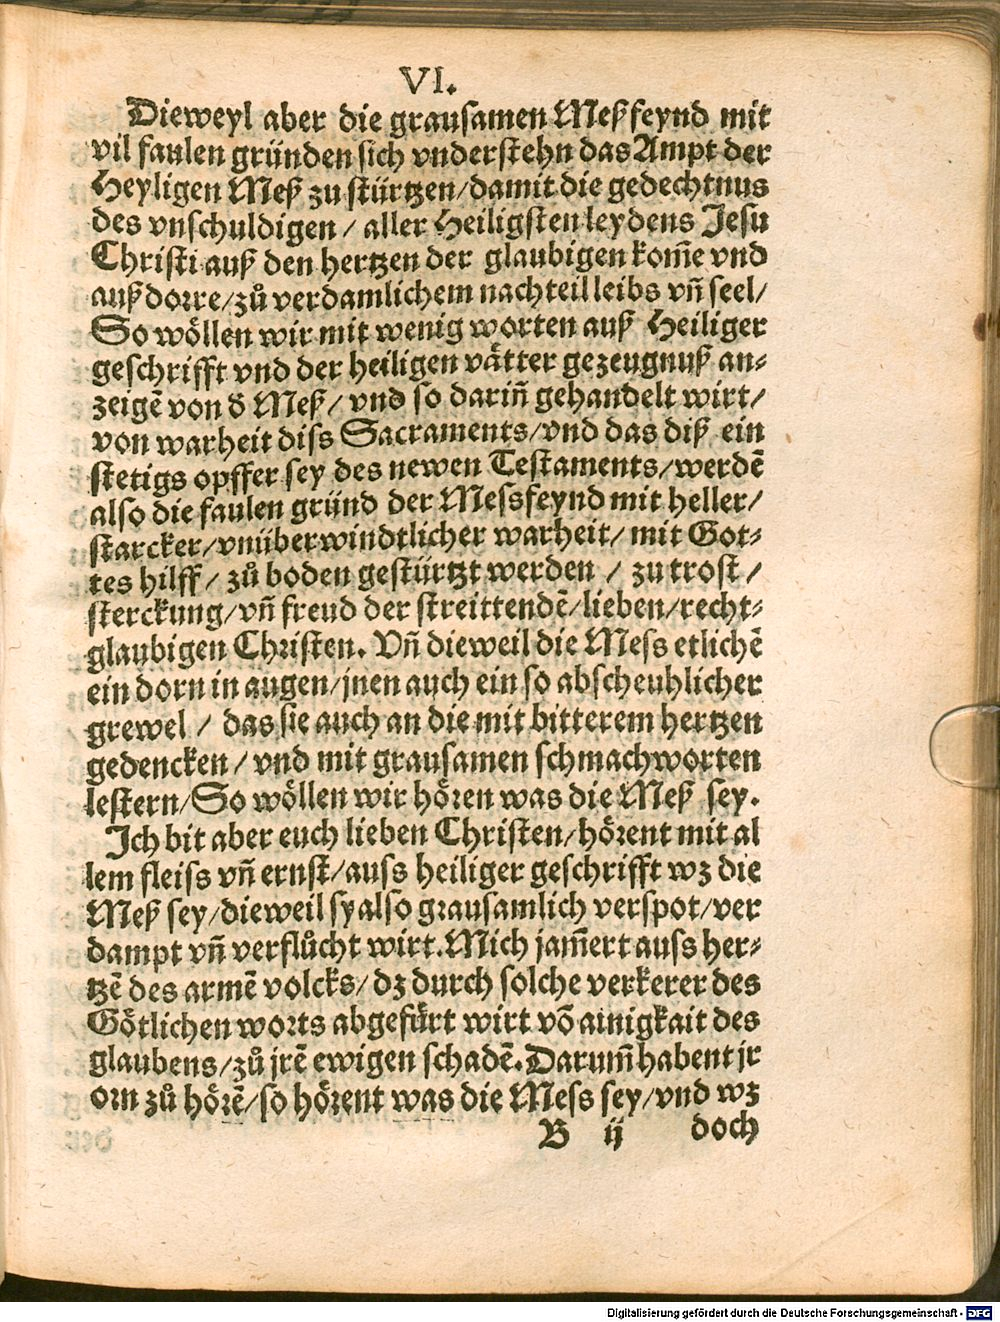 VI.
Dieweyl aber die grausamen Meßfeynd mit
vil faulen gründen sich vnderstehn das Ampt der
Heyligen Meß zu stürtzen/damit die gedechtnus
des vnschuldigen / aller Heiligsten leydens Jesu
Christi auß den hertzen der glaubigen kom̃e vnd
auß dorre/zů verdamlichem nachteil leibs vñ seel/
So wöllen wir mit wenig worten auß Heiliger
geschrifft vnd der heiligen vätter gezeugnuß an⸗
zeigẽ von d̕ Meß/ vnd so dariñ gehandelt wirt/
von warheit diss Sacraments/vnd das diß ein
stetigs opffer sey des newen Testaments/werdẽ
also die faulen gründ der Messfeynd mit heller/
starcker/vnüberwindtlicher warheit/ mit Got⸗
tes hilff/ zů boden gestürtzt werden / zu trost /
sterckung/vñ freud der streittendẽ/lieben/recht⸗
glaubigen Christen. Vñ dieweil die Mess etlichẽ
ein dorn in augen/jnen auch ein so abscheuhlicher
grewel / das sie auch an die mit bitterem hertzen
gedencken/ vnd mit grausamen schmachworten
lestern/So wöllen wir hören was die Meß sey.
Ich bit aber euch lieben Christen/hörent mit al
lem fleiss vñ ernst/auss heiliger geschrifft wz die
Meß sey/dieweil sy also grausamlich verspot/ver
dampt vñ verflůcht wirt. Mich jam̃ert auss her⸗
tzẽ des armẽ volcks/ dz durch solche verkerer des
Götlichen worts abgefürt wirt võ ainigkait des
glaubens/zů jrẽ ewigen schadẽ. Darum̃ habent jr
orn zů hörẽ/so hörent was die Mess sey/vnd wz
B ij doch
Digitalisierung gefördert durch die Deutsche Forschungsgemeinschaft - DFG